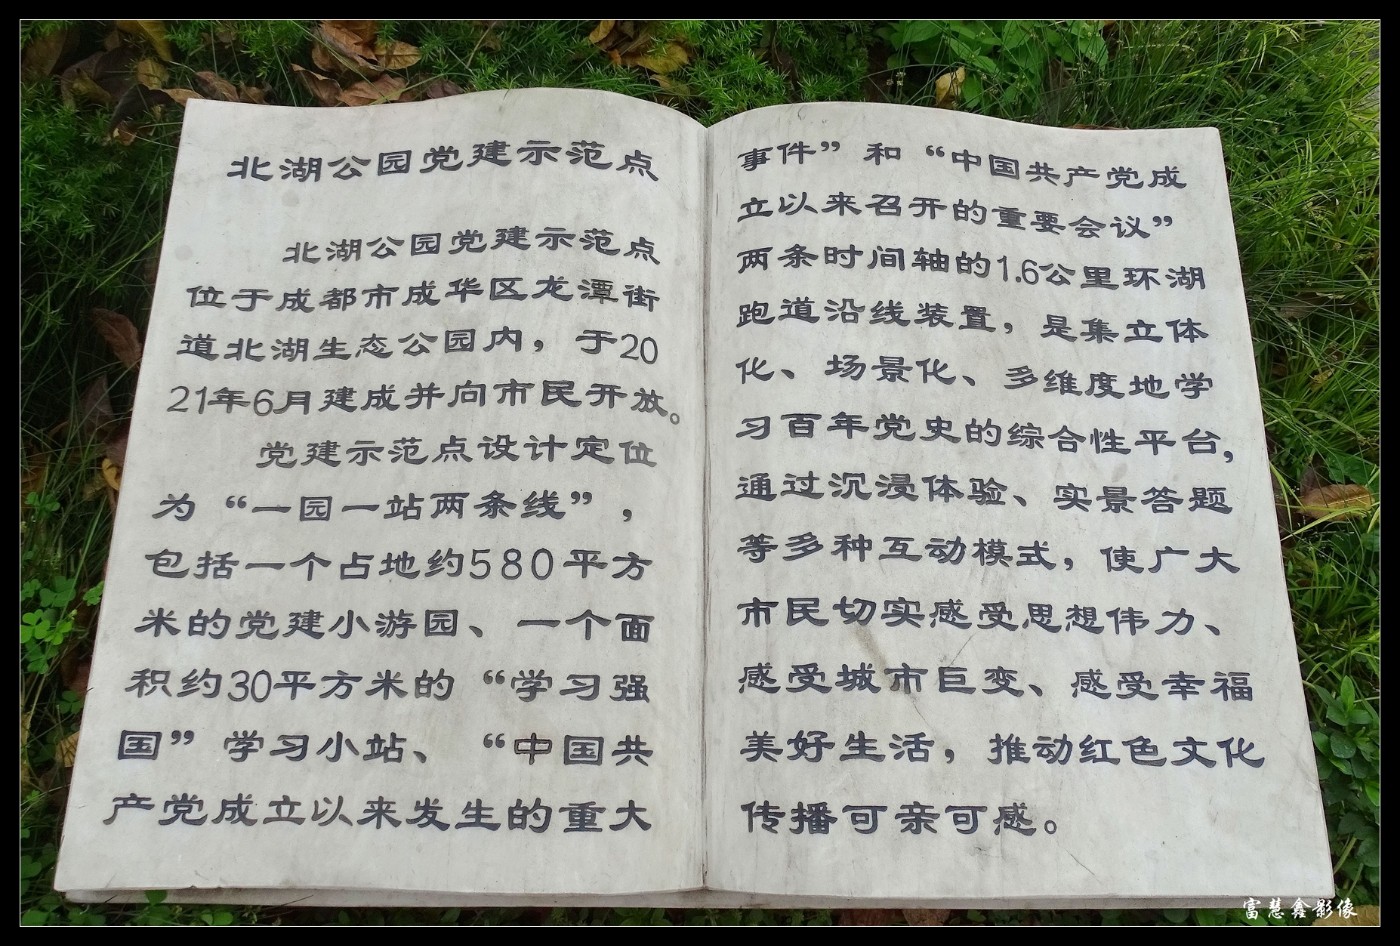 北湖公园党建示范点
北湖公园党建示范点
位于成都市成华区龙潭街
道北湖生态公园内，于20
21年6月建成并向市民开放。
党建示范点设计定位
为“一园一站两条线”，
包括一个占地约580平方
米的党建小游园、一个面
积约30平方米的“学习强
国”学习小站、“中国共
产党成立以来发生的重大
事件”和“中国共产党成
立以来召开的重要会议”
两条时间轴的1.6公里环湖
跑道沿线装置，是集立体
化、场景化、多维度地学
习百年党史的综合性平台，
通过沉浸体验、实景答题
等多种互动模式，使广大
市民切实感受思想伟力、
感受城市巨变、感受幸福
美好生活，推动红色文化
传播可亲可感。
富慧鑫影像